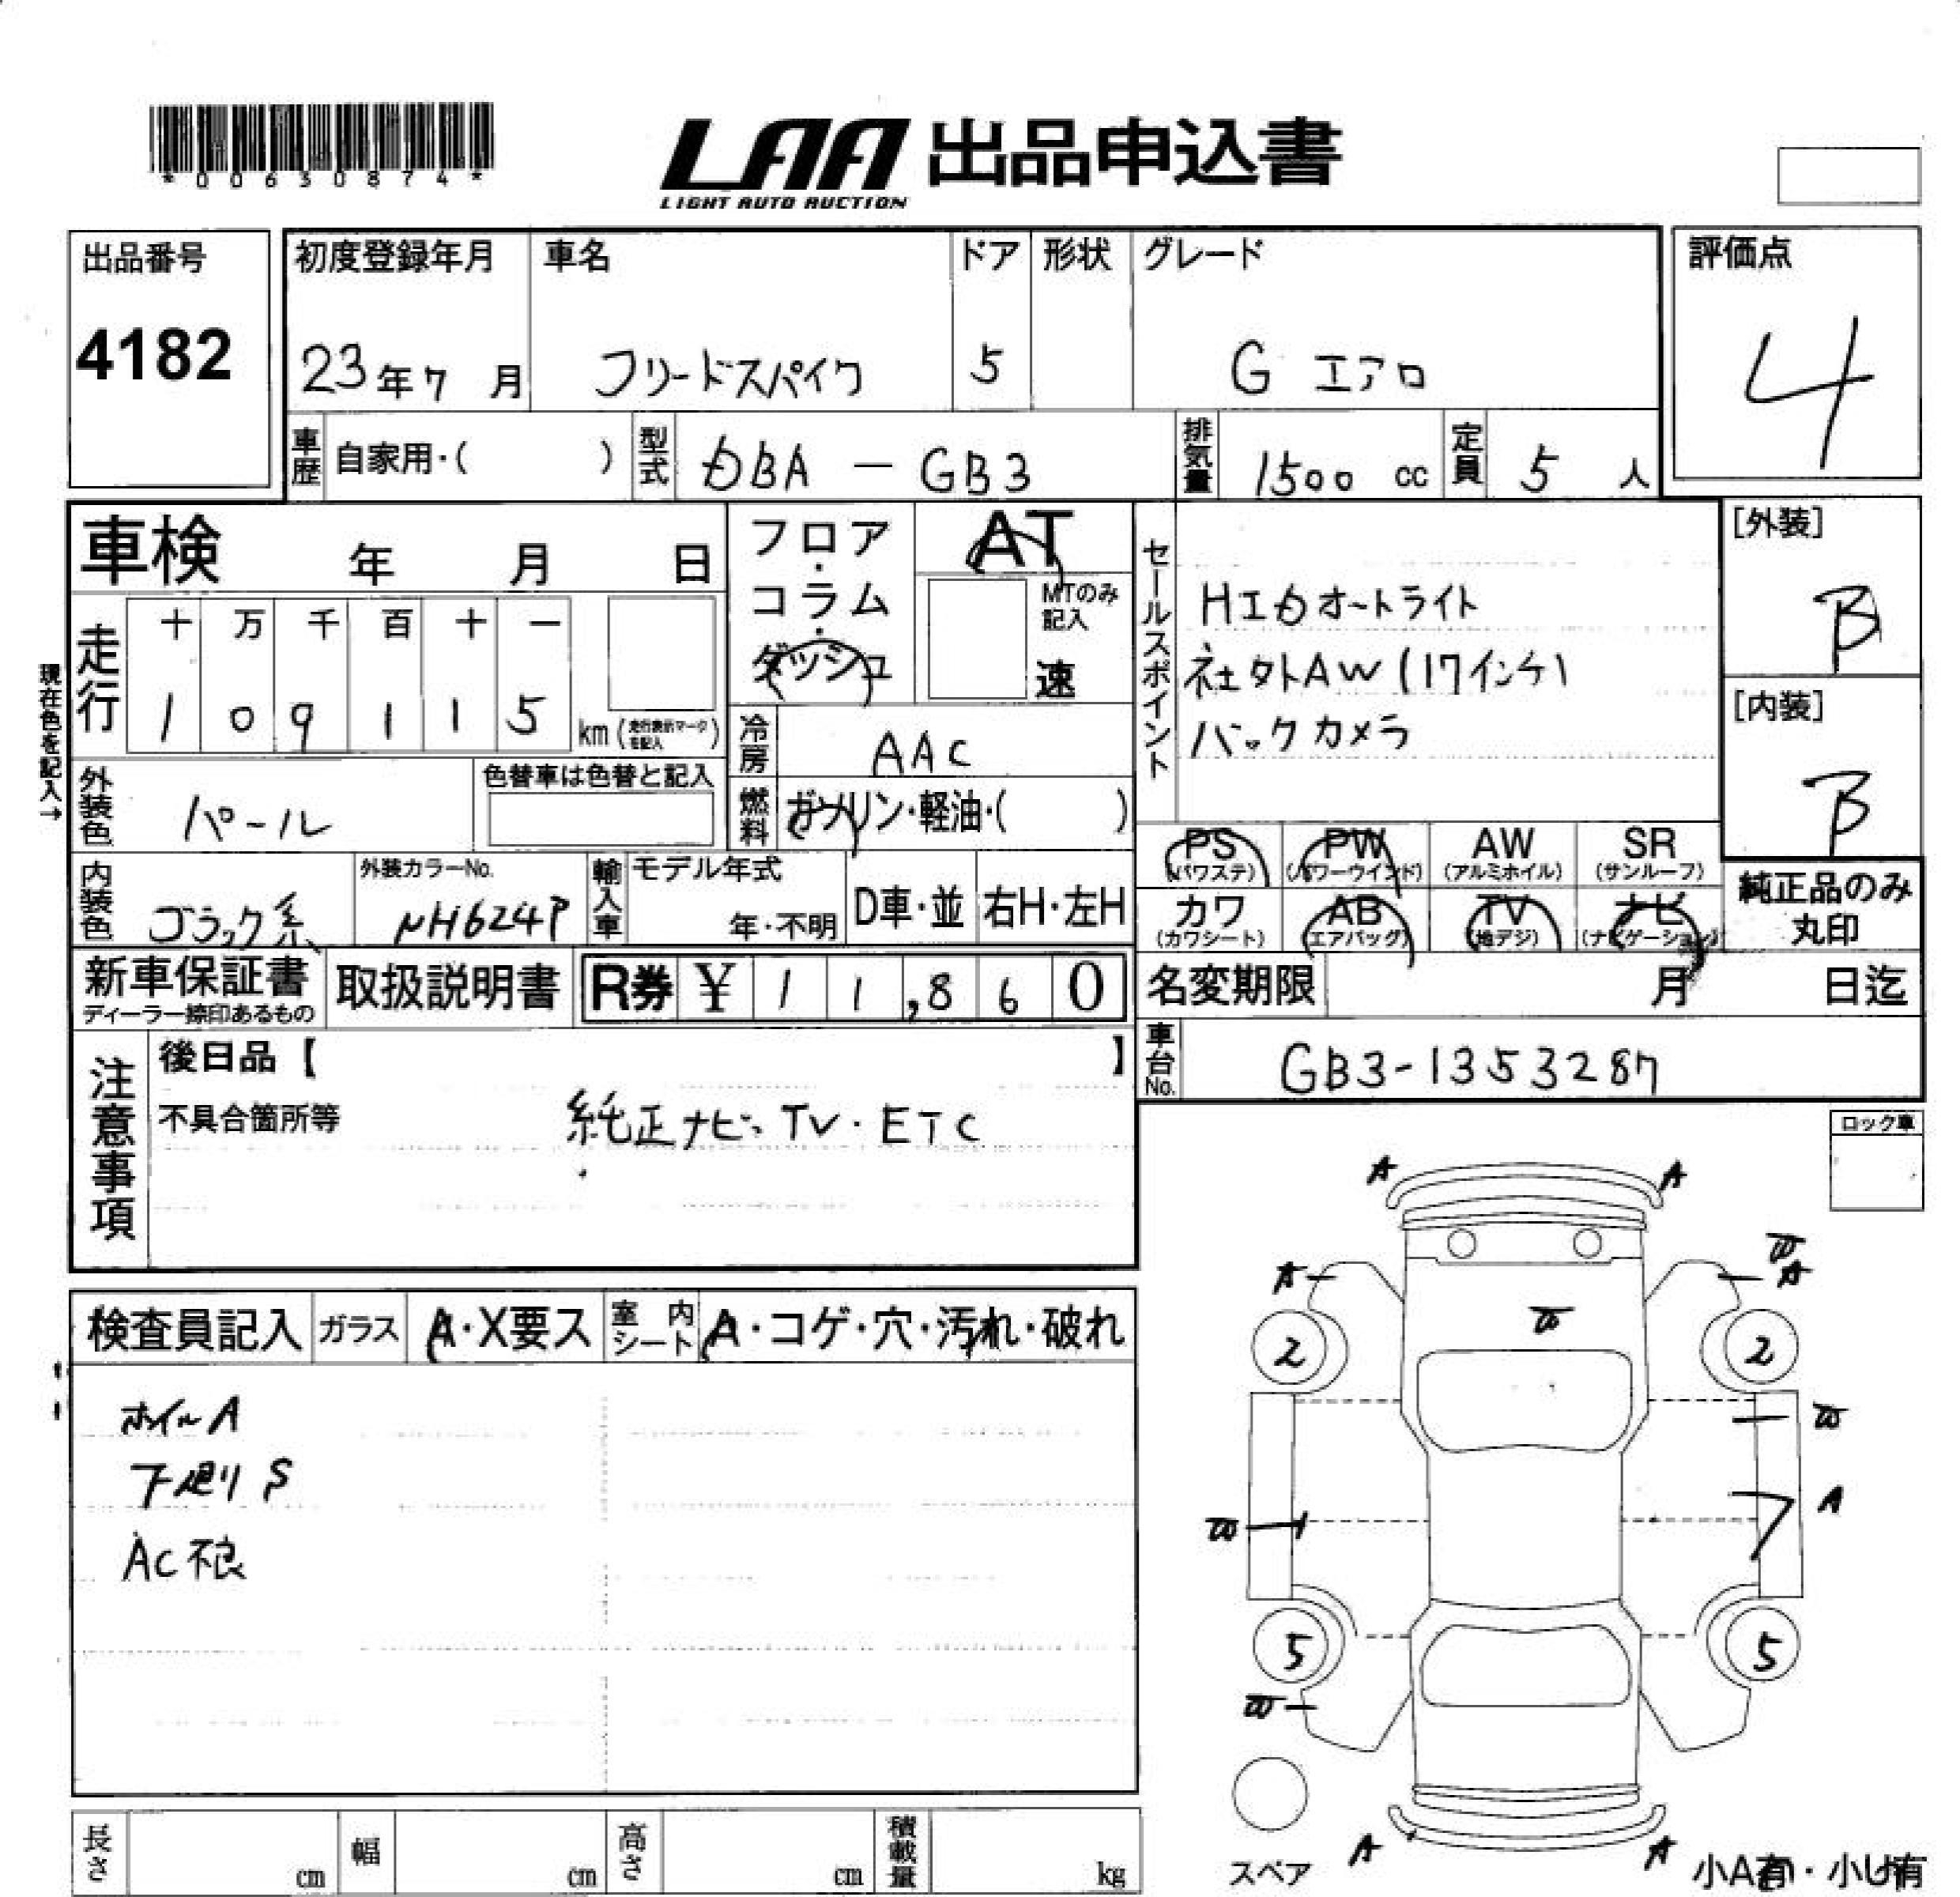 *00630874*
LAA 出品申込書
LIGHT AUTO AUCTION
出品番号 初度登録年月 車名 ドア 形状 グレード 評価点
4182 23年7月 フリードスパイク 5 G エアロ 4
車歴 自家用・( ) 型式 DBA - GB3 排気量 1500 cc 定員 5 人
車検 年 月 日
フロア・コラム・ダッシュ
AT
MTのみ記入
速
セールスポイント
HIDオートライト
社外AW(17インチ)
バックカメラ
[外装]
B
[内装]
B
現在色を記入→
走行 十 万 千 百 十 一
1 0 9 1 1 5 km(走行表示マークを記入)
冷房 AAC
外装色 パール 色替車は色替と記入
燃料 ガソリン・軽油・( )
PS (パワステ) PW (パワーウインド) AW (アルミホイル) SR (サンルーフ)
カワ (カワシート) AB (エアバッグ) TV (地デジ) ナビ (ナビゲーション)
純正品のみ
丸印
内装色 ブラック系 外装カラーNo. NH624P 輸入車 モデル年式 年・不明 D車・並 右H・左H
新車保証書 ディーラー捺印あるもの 取扱説明書 R券 ¥ 1 1,8 6 0
名変期限 月 日迄
車台No. GB3-1353287
注意事項
後日品【 】
不具合箇所等 純正ナビ・TV・ETC
ロック車
検査員記入 ガラス A・X要ス 室内シート A・コゲ・穴・汚れ・破れ
ホイルA
下廻りS
AC不良
A A
A A
2 2
A
5 5
スペア A A 小A有・小U有
長さ cm 幅 cm 高さ cm 積載量 kg